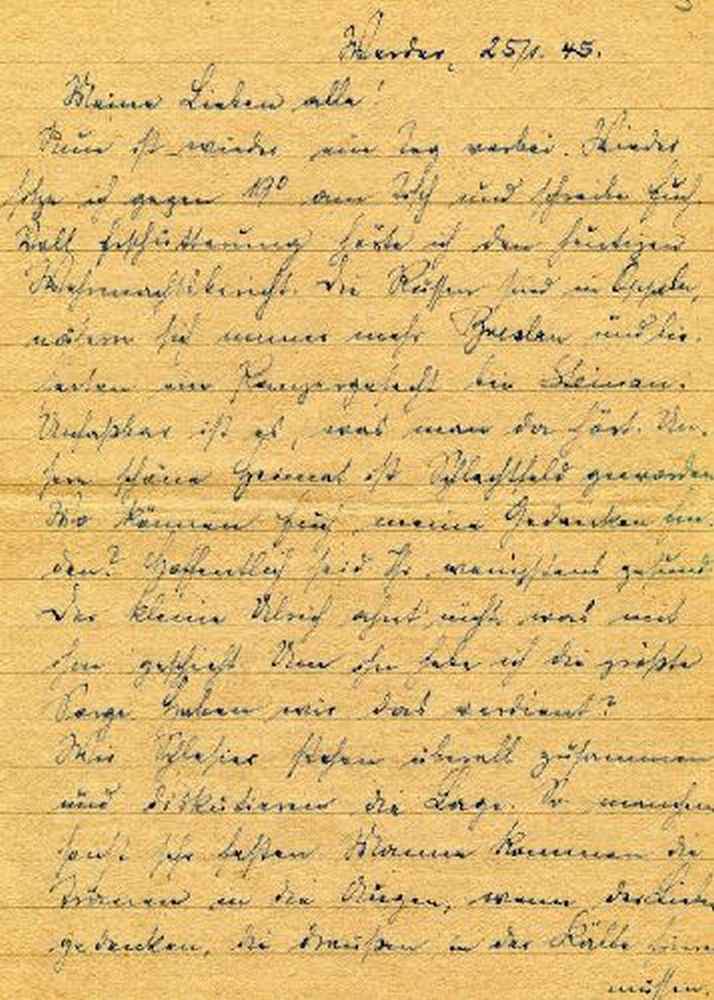 Werder, 25/1. 45.
Meine Lieben alle!
Nun ist wieder ein Tag vorbei. Wieder
sitze ich gegen 19⁰ am Tisch und schreibe Euch.
Voll Erschütterung hörte ich den heutigen
Wehrmachtsbericht. Die Russen sind in Oppeln,
nähern sich immer mehr Breslau und lie-
ferten ein Panzergefecht bei Steinau.
Unfaßbar ist es, was man da hört. Un-
sere schöne Heimat ist Schlachtfeld geworden
Wo können Euch meine Gedanken fin-
den? Hoffentlich seid Ihr wenigstens gesund
Der kleine Ulrich ahnt nicht was mit
ihm geschieht. Um ihn habe ich die größte
Sorge. Haben wir das verdient?
Wir Schlesier stehen überall zusammen
und diskutieren die Lage. So manchem
sonst sehr festen Manne kommen die
Tränen in die Augen, wenn der Lieben
gedenken, die draußen in der Kälte
müssen.